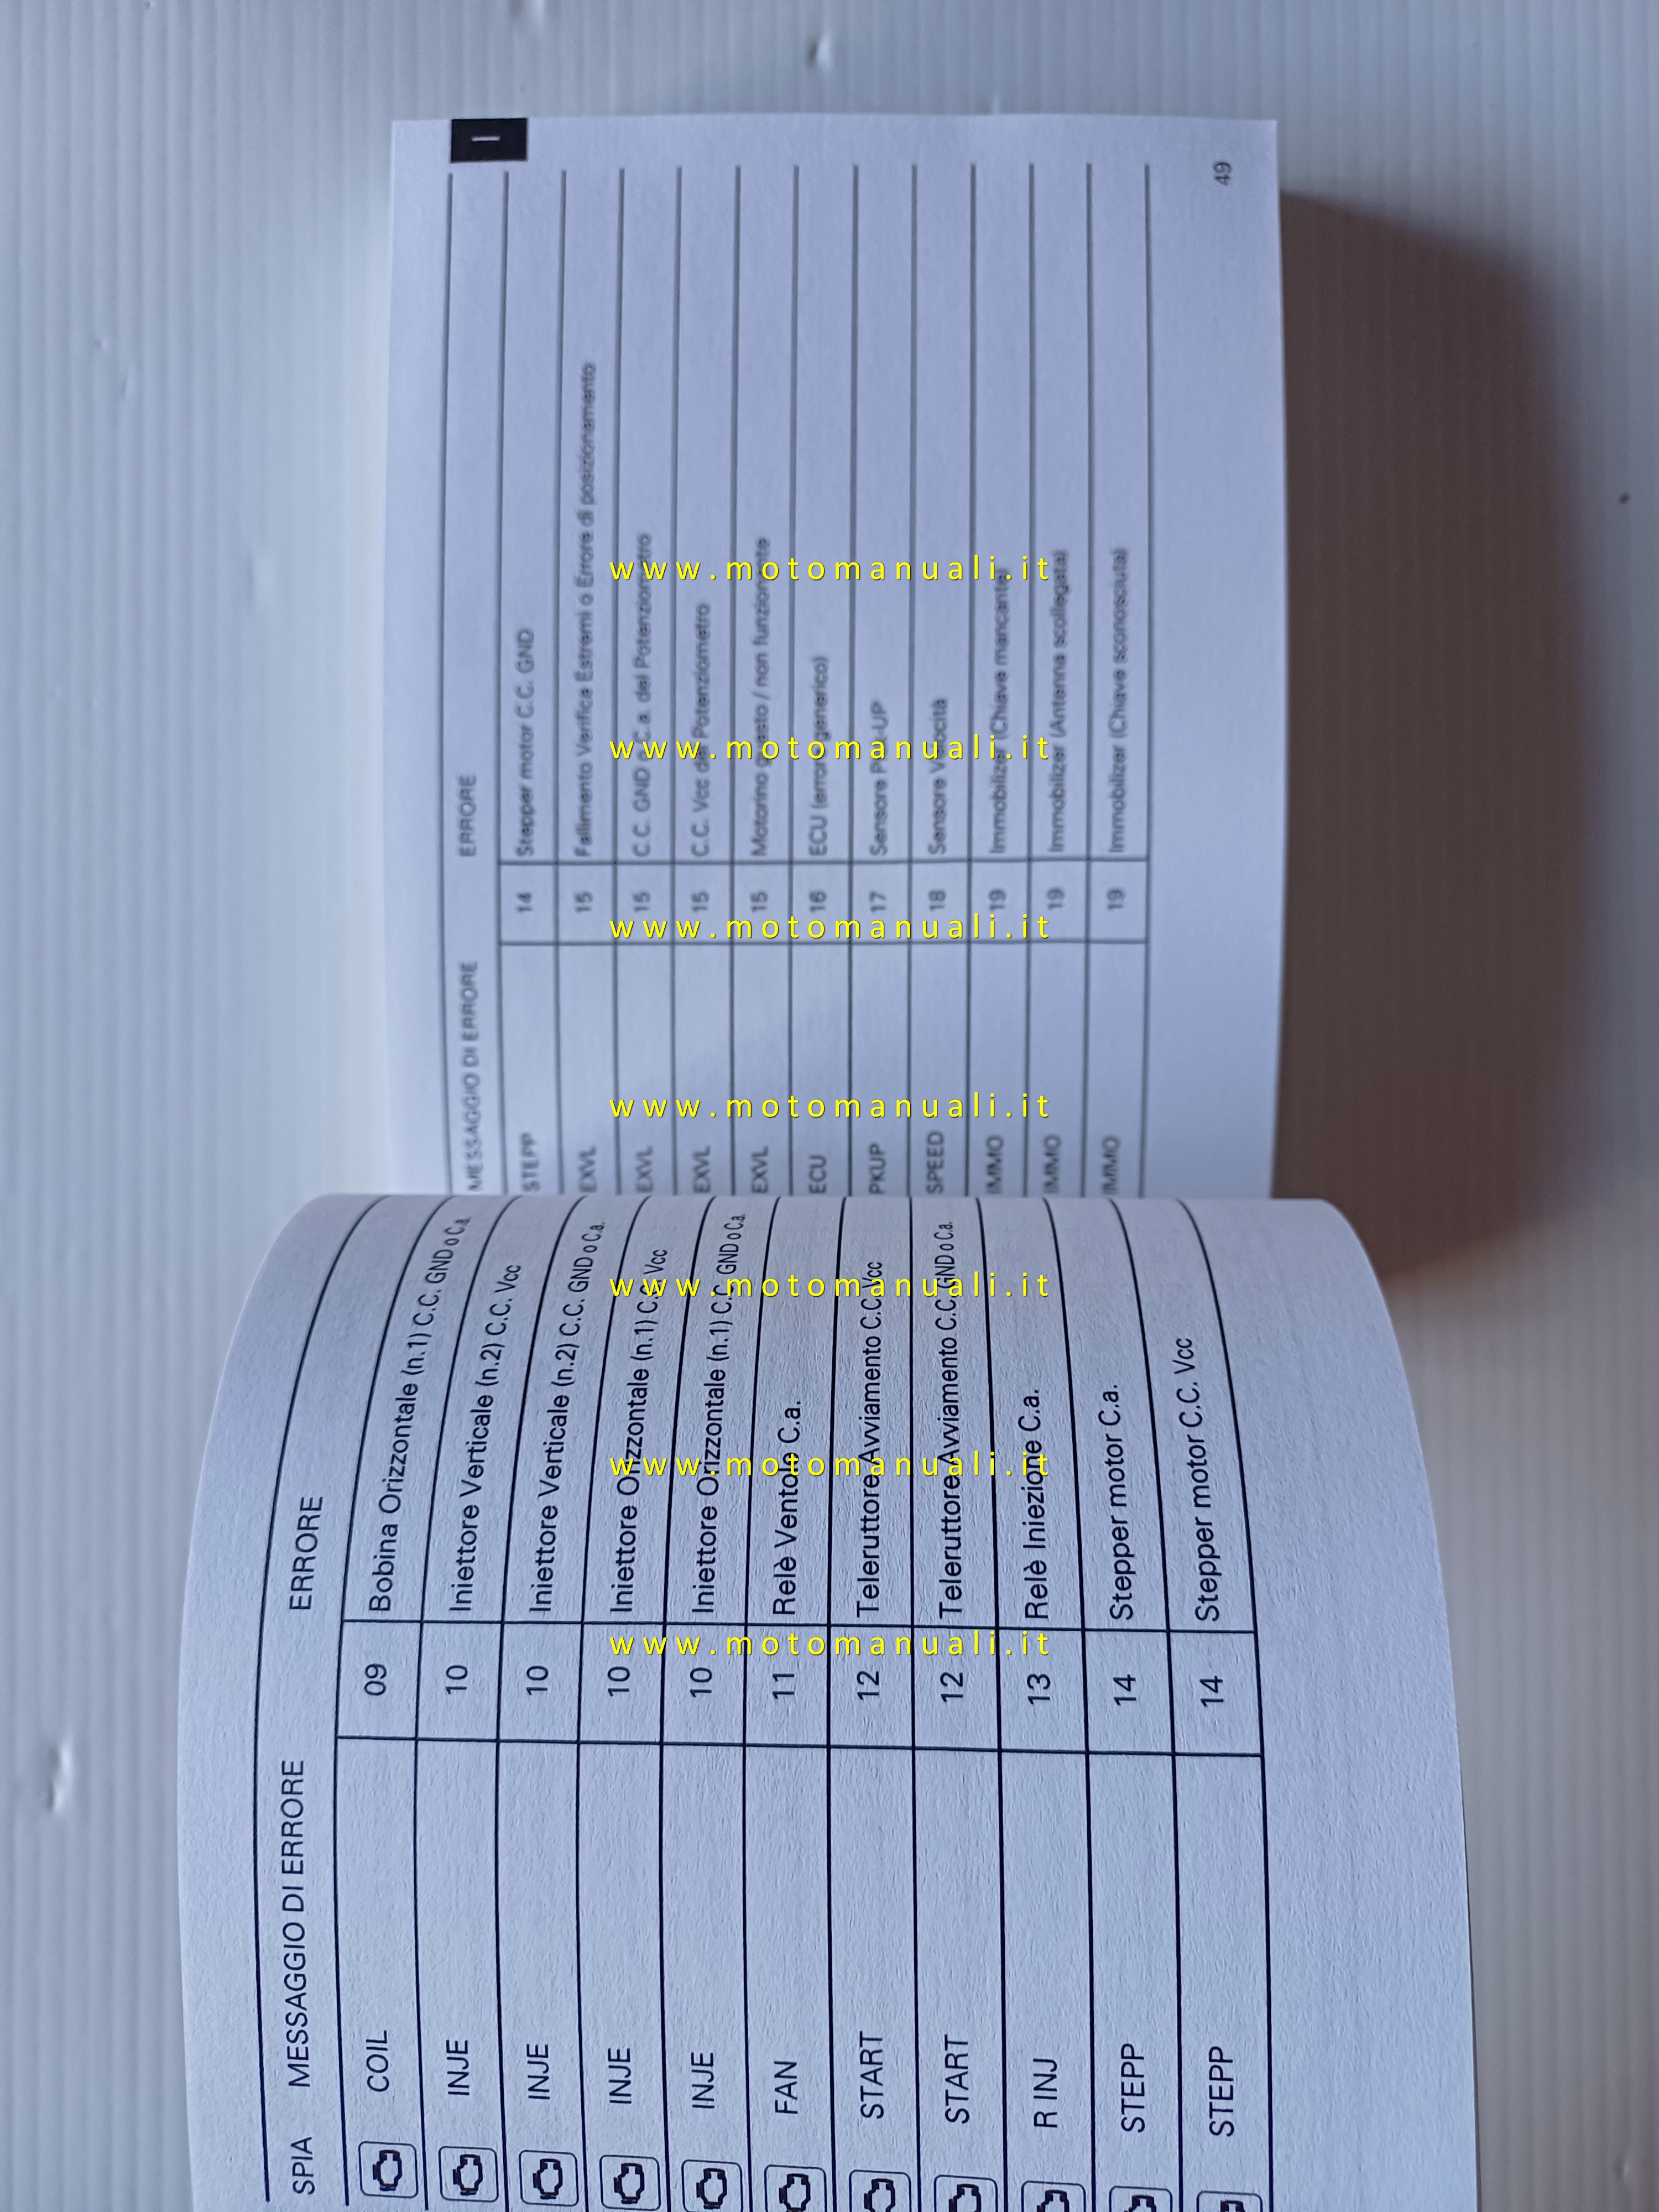 SPIA MESSAGGIO DI ERRORE ERRORE
COIL 09 Bobina Orizzontale (n.1) C.C. GND o C.a.
INJE 10 Iniettore Verticale (n.2) C.C. Vcc
INJE 10 Iniettore Verticale (n.2) C.C. GND o C.a.
INJE 10 Iniettore Orizzontale (n.1) C.C. Vcc
INJE 10 Iniettore Orizzontale (n.1) C.C. GND o C.a.
FAN 11 Relè Ventole C.a.
START 12 Teleruttore Avviamento C.C. Vcc
START 12 Teleruttore Avviamento C.C. GND o C.a.
R INJ 13 Relè Iniezione C.a.
STEPP 14 Stepper motor C.a.
STEPP 14 Stepper motor C.C. Vcc
I
MESSAGGIO DI ERRORE ERRORE
STEPP 14 Stepper motor C.C. GND
EXVL 15 Fallimento Verifica Estremi o Errore di posizionamento
EXVL 15 C.C. GND o C.a. del Potenziometro
EXVL 15 C.C. Vcc del Potenziometro
EXVL 15 Motorino guasto / non funzionante
ECU 16 ECU (errore generico)
PKUP 17 Sensore Pick-UP
SPEED 18 Sensore Velocità
IMMO 19 Immobilizer (Chiave mancante)
IMMO 19 Immobilizer (Antenna scollegata)
IMMO 19 Immobilizer (Chiave sconosciuta)
49
www.motomanuali.it
www.motomanuali.it
www.motomanuali.it
www.motomanuali.it
www.motomanuali.it
www.motomanuali.it
www.motomanuali.it